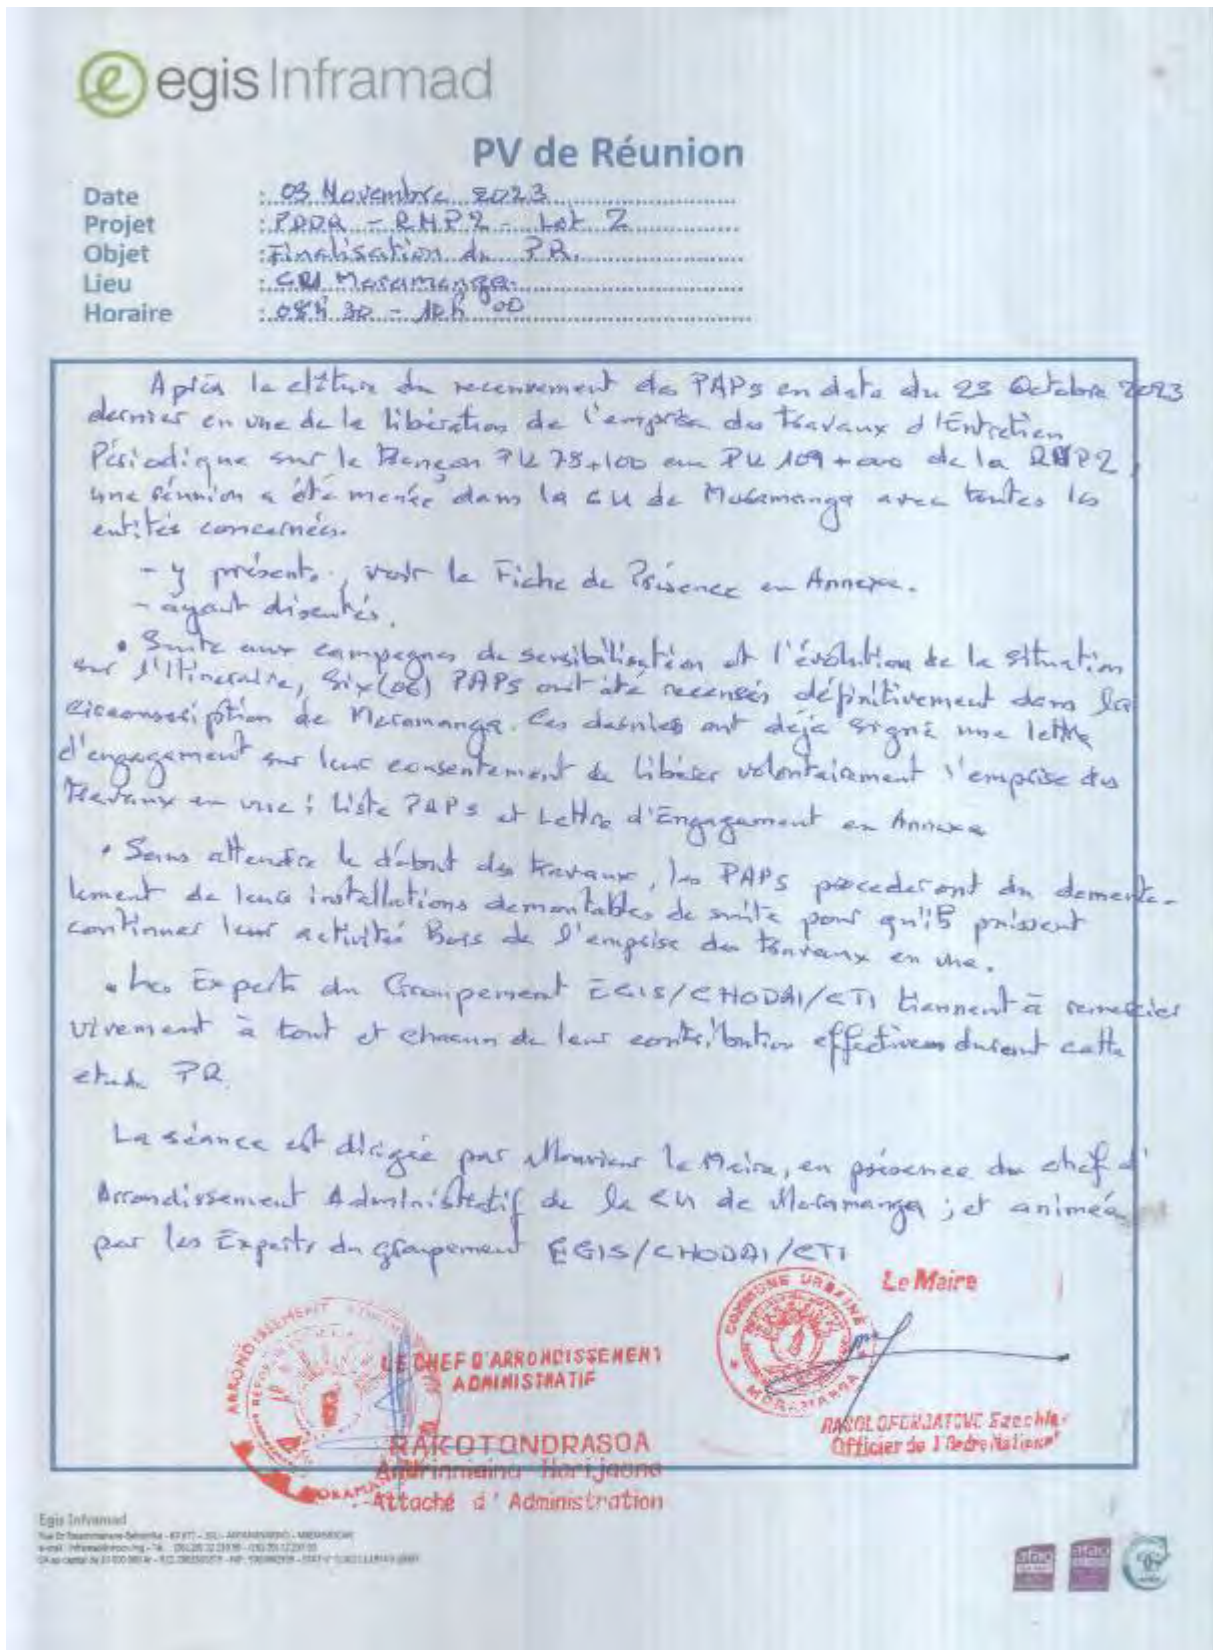 egis Inframad
PV de Réunion
Date : 03 Novembre 2023
Projet : PDDA - RNP2 - Lot 2
Objet : Finalisation du PR.
Lieu : CRI Moramanga
Horaire : 08h 30 - 10h 00
Après la clôture du recensement des PAPs en date du 23 Octobre 2023
dernier en vue de la libération de l'emprise des travaux d'Entretien
Périodique sur le Tronçon PK 75+100 au PK 109+000 de la RNP2,
une réunion a été menée dans la CU de Moramanga avec toutes les
entités concernées.
- y présente, voir la Fiche de Présence en Annexe.
- ayant discutés,
• Suite aux campagnes de sensibilisation et l'évolution de la situation
sur l'Itineraire, six (06) PAPs ont été recensés définitivement dans la
circonscription de Moramanga. Ces derniers ont deja signé une lettre
d'engagement sur leur consentement de libérer volontairement l'emprise des
Travaux en vue : Liste PAPs et Lettre d'Engagement en Annexe
• Sans attendre le début des travaux, les PAPs procederont du demante-
lement de leurs installations demontables de suite pour qu'ils puissent
continuer leur activités hors de l'emprise des travaux en vue.
• Les Experts du Groupement EGIS/CHODAI/CTI tiennent à remercier
vivement à tout et chacun de leur contribution effectives durant cette
etude PR.
La séance est dirigée par Monsieur le Maire, en présence du chef d'
Arrondissement Administratif de la CU de Moramanga ; et animée
par les Experts du groupement EGIS/CHODAI/CTI
Le Maire
COMMUNE URBAINE
MORAMANGA
ARRONDISSEMENT
LE CHEF D'ARRONDISSEMENT
ADMINISTRATIF
Officier de l'Ordre National
RAKOTONDRASOA
Andrinmaina Harijaona
Attaché d'Administration
Egis Inframad